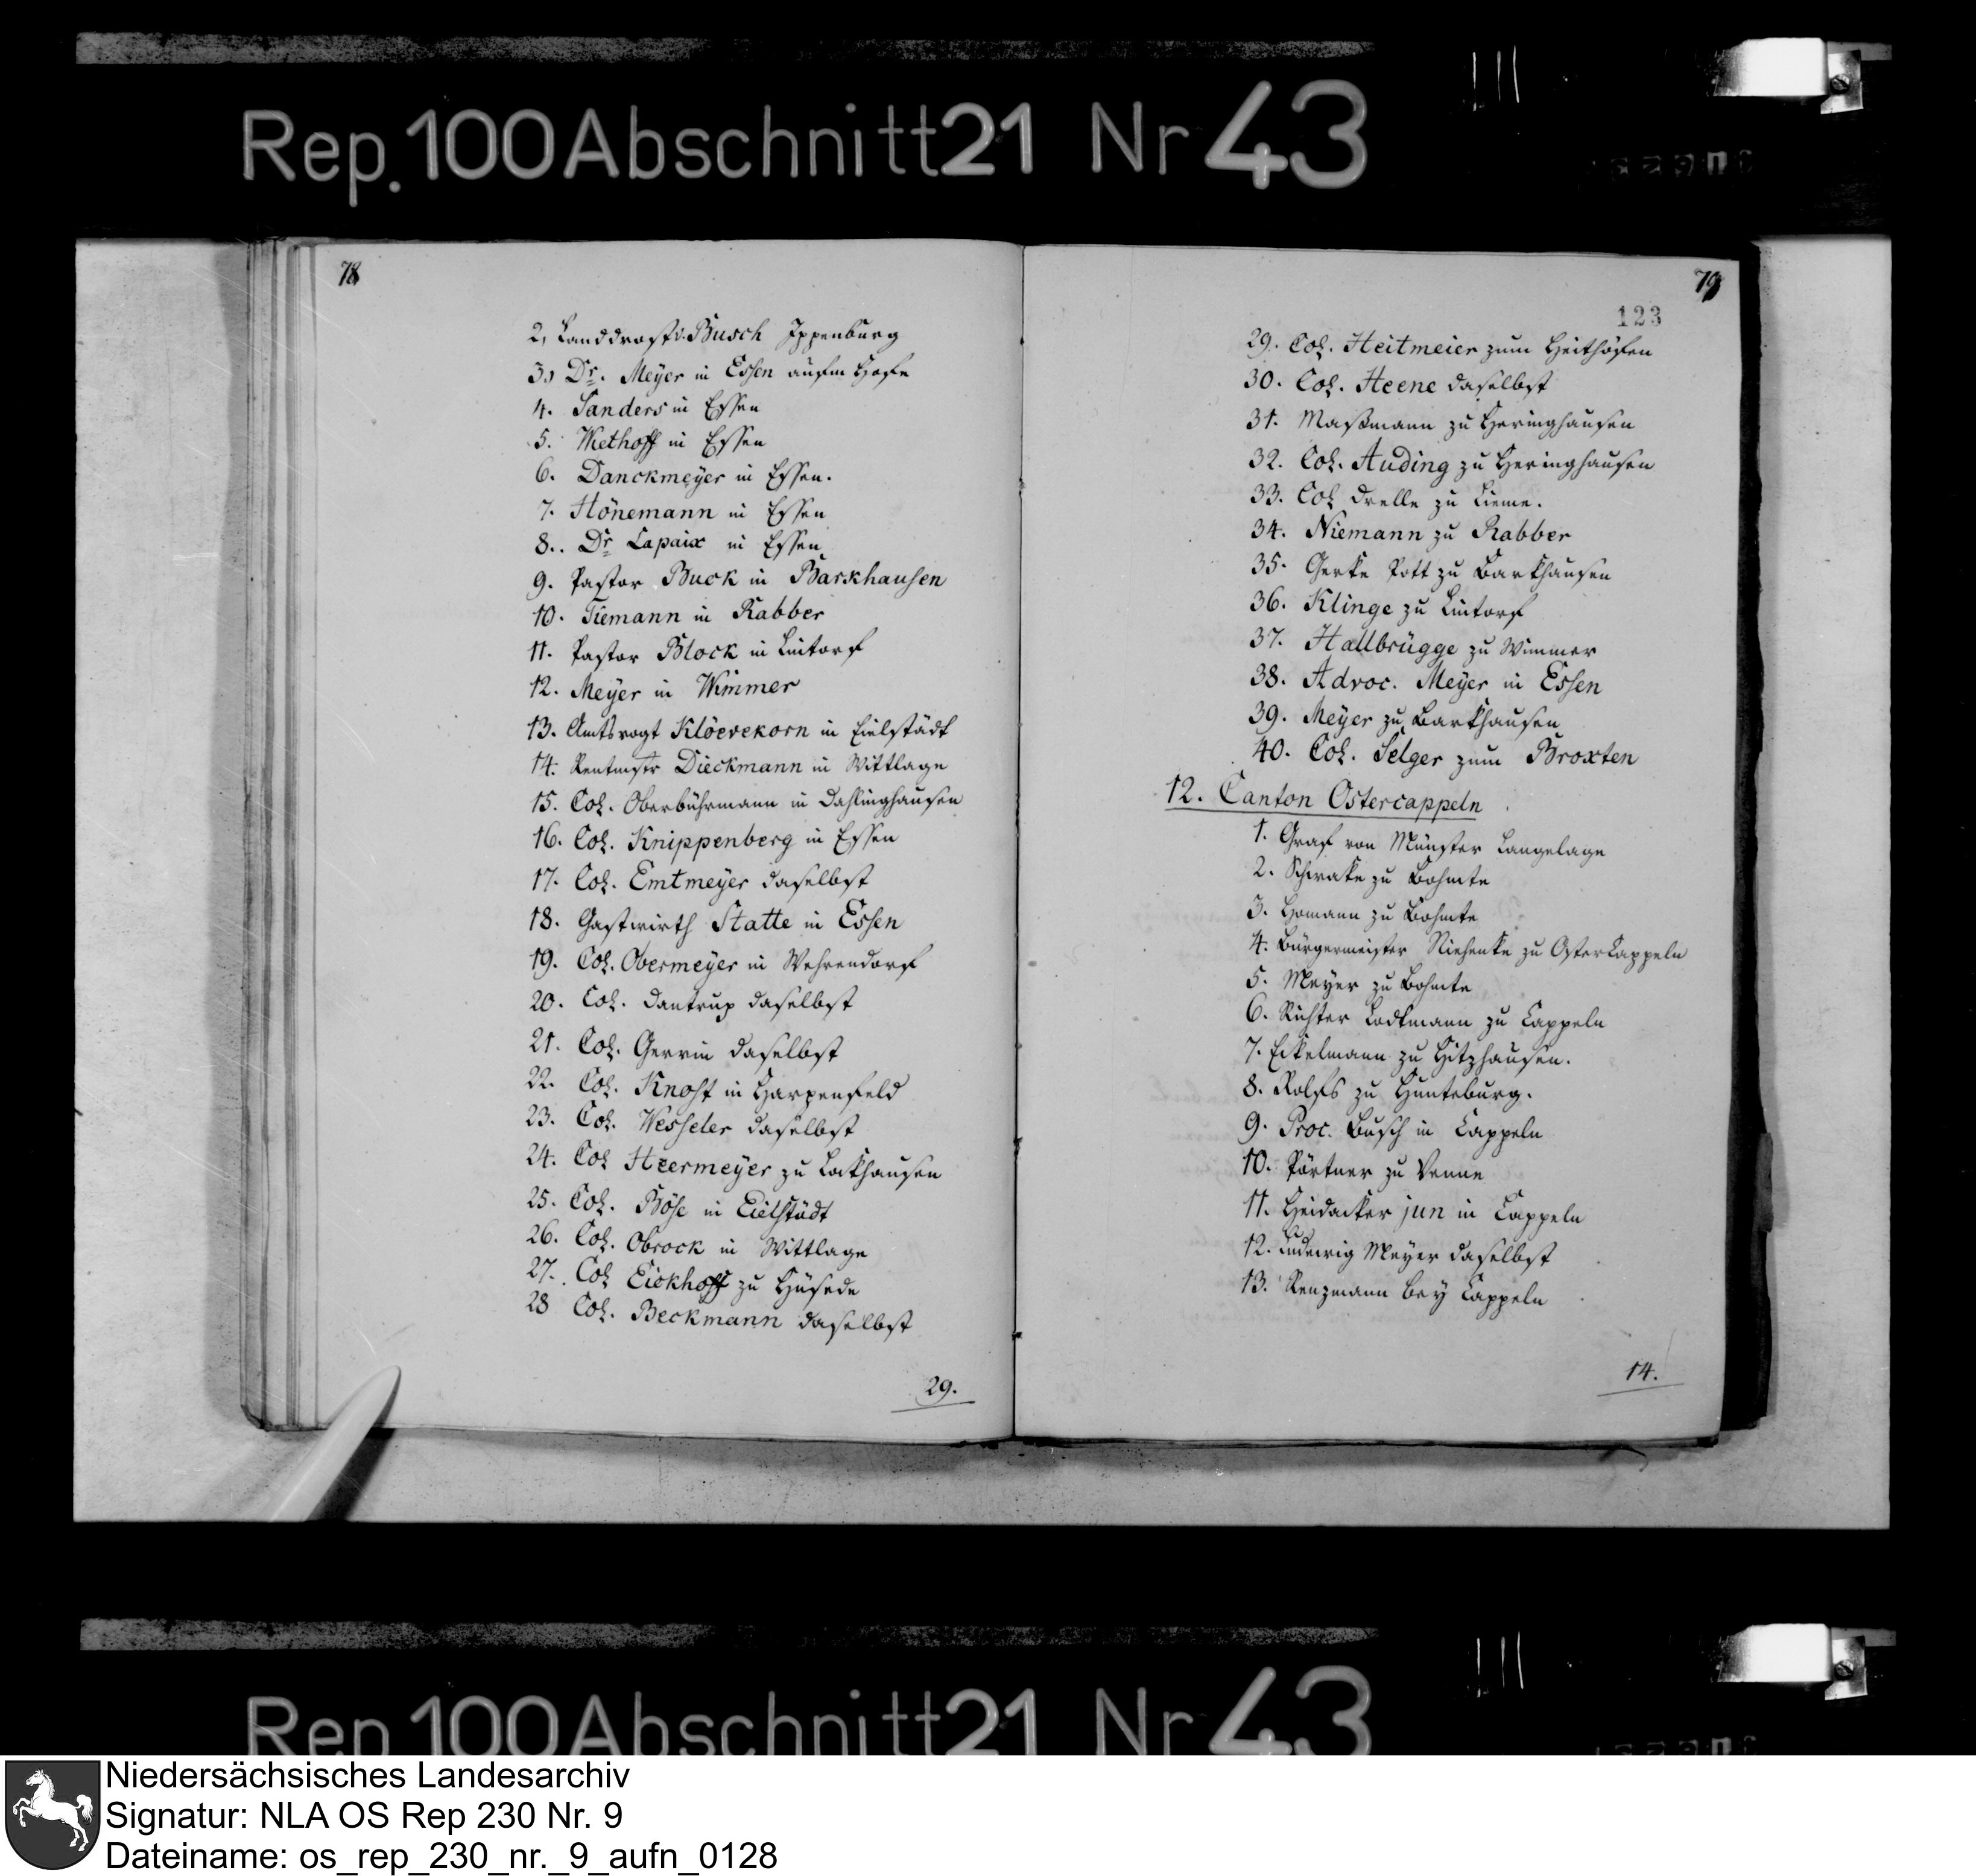 Rep. 100 Abschnitt 21 Nr 43
78
2, Landdrost v. Busch Ippenburg
3, Dr. Meyer in Essen aufm Hofe
4. Sanders in Essen
5. Wiethoff in Essen
6. Danckmeyer in Essen.
7. Hönemann in Essen
8.. Dr Lapaix in Essen
9. Pastor Buck in Barkhausen
10. Tiemann in Rabber
11. Pastor Block in Lintorf
12. Meyer in Wimmer
13. Amtsvogt Klöevekorn in Eielstädt
14. Rentmstr Dieckmann in Wittlage
15. Col. Oberbührmann in Dahlinghausen
16. Col. Knippenberg in Essen
17. Col. Emtmeyer daselbst
18. Gastwirth Statte in Essen
19. Col. Obermeyer in Wehrendorf
20. Col. Dantrup daselbst
21. Col. daselbst
22. Col. Knost in Harpenfeld
23. Col. Wesseler daselbst
24. Col Heermeyer zu Lockhausen
25. Col. Böse in Eielstädt
26. Col. Obrock in Wittlage
27. Col Eickhoff zu Hüsede
28 Col. Beckmann daselbst
29.
79
123
29. Col. Heitmeier zum Heithöfen
30. Col. Heene daselbst
31. Maßmann zu Heringhausen
32. Col. Auding zu Heringhausen
33. Col Drelle zu Linne.
34. Niemann zu Rabber
35. Gerke Pott zu Barkhausen
36. Klinge zu Lintorf
37. Hallbrügge zu Wimmer
38. Advoc. Meyer in Essen
39. Meyer zu Barkhausen
40. Col. Selger zum Broxten
12. Canton Ostercappeln
1. Graf von Münster Langelage
2. Schwake zu Bohmte
3. Homann zu Bohmte
4. Bürgermeister Niehenke zu Ostercappeln
5. Meyer zu Bohmte
6. Richter Lodtmann zu Cappeln
7. Eickelmann zu Hitzhausen.
8. Rolfs zu Hunteburg.
9. Proc. Busch in Cappeln
10. Pörtner zu Venne
11. Heidacker jun in Cappeln
12. Ludewig Meyer daselbst
13. Renzmann bey Cappeln
14.
Rep 100 Abschnitt 21 Nr 43
Niedersächsisches Landesarchiv
Signatur: NLA OS Rep 230 Nr. 9
Dateiname: os_rep_230_nr._9_aufn_0128